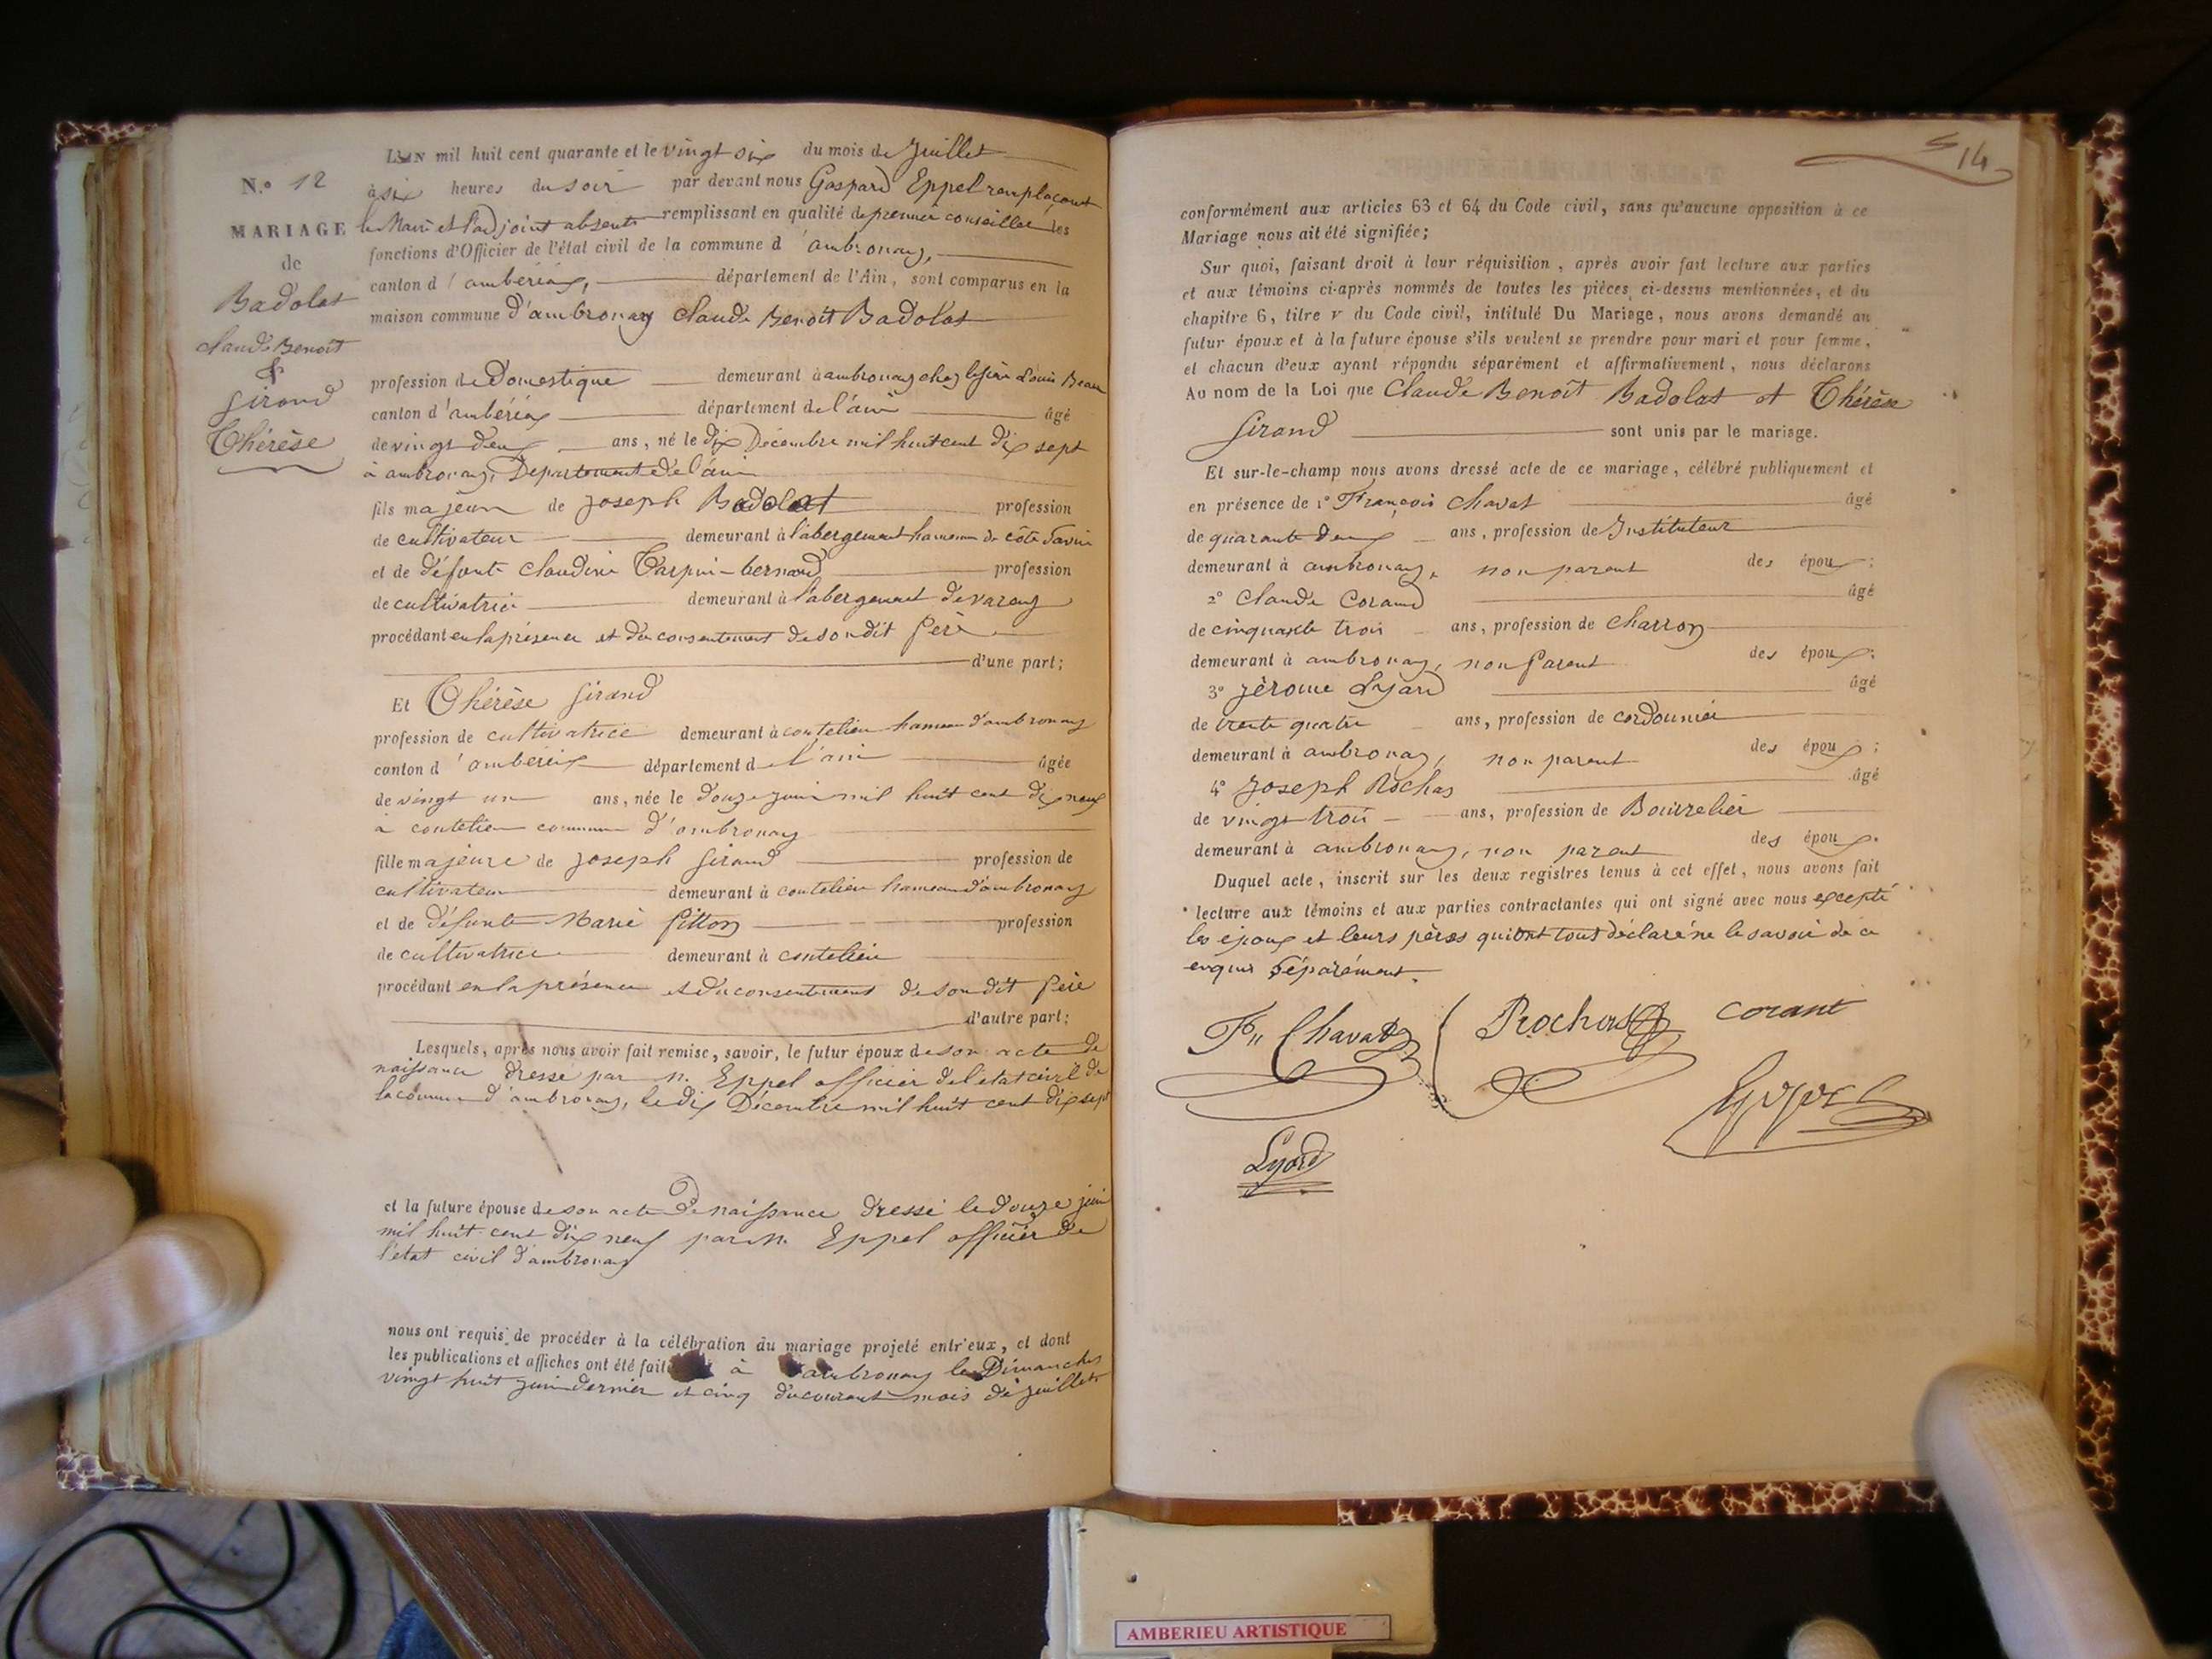 N.° 12
MARIAGE
de
Badolat
Claude Benoît
&
Girand
Thérèse
L'AN mil huit cent quarante et le vingt six du mois de Juillet
à six heures du soir par devant nous Gaspard Eppel remplaçant
le Maire et l'adjoint absents remplissant en qualité de premier conseiller les
fonctions d'Officier de l'état civil de la commune d'ambronay,
canton d'ambérieux, département de l'Ain, sont comparus en la
maison commune d'ambronay Claude Benoît Badolat
profession de Domestique demeurant à ambronay chez le sieur Louis
canton d'ambérieux département de l'ain âgé
de vingt deux ans, né le dix Décembre mil huit cent dix sept
à ambronay, Département de l'ain
fils majeur de Joseph Badolat profession
de cultivateur demeurant à l'abergement hameau de côte
et de défunte Claudine Tarpin-bernard profession
de cultivatrice demeurant à l'abergement de varey
procédant en la présence et du consentement de son dit père
d'une part;
Et Thérèse Girand
profession de cultivatrice demeurant à coutelieu hameau d'ambronay
canton d'ambérieux département de l'ain âgée
de vingt un ans, née le douze juin mil huit cent dix neuf
à coutelieu commune d'ambronay
fille majeure de Joseph Girand profession de
cultivateur demeurant à coutelieu hameau d'ambronay
et de défunte Marie Pitton profession
de cultivatrice demeurant à coutelieu
procédant en la présence et du consentement de son dit père
d'autre part;
Lesquels, après nous avoir fait remise, savoir, le futur époux de son acte de
naissance dressé par M. Eppel officier de l'état civil de
la commune d'ambronay, le dix Décembre mil huit cent dix sept
et la future épouse de son acte de naissance dressé le douze juin
mil huit cent dix neuf par M. Eppel officier de
l'état civil d'ambronay
nous ont requis de procéder à la célébration du mariage projeté entr'eux, et dont
les publications et affiches ont été faites à ambronay les Dimanches
vingt huit juin dernier et cinq du courant mois de juillet
14
conformément aux articles 63 et 64 du Code civil, sans qu'aucune opposition à ce
Mariage nous ait été signifiée;
Sur quoi, faisant droit à leur réquisition, après avoir fait lecture aux parties
et aux témoins ci-après nommés de toutes les pièces ci-dessus mentionnées, et du
chapitre 6, titre v du Code civil, intitulé Du Mariage, nous avons demandé au
futur époux et à la future épouse s'ils veulent se prendre pour mari et pour femme,
et chacun d'eux ayant répondu séparément et affirmativement, nous déclarons
Au nom de la Loi que Claude Benoît Badolat et Thérèse
Girand sont unis par le mariage.
Et sur-le-champ nous avons dressé acte de ce mariage, célébré publiquement et
en présence de 1° François Chavat âgé
de quarante deux ans, profession de Instituteur
demeurant à ambronay, non parent des époux;
2° Claude Corand âgé
de cinquante trois ans, profession de Charron
demeurant à ambronay, non parent des époux;
3° Jérome Lyard âgé
de trente quatre ans, profession de cordonnier
demeurant à ambronay, non parent des époux;
4° Joseph Rochas âgé
de vingt trois ans, profession de Bourrelier
demeurant à ambronay, non parent des époux.
Duquel acte, inscrit sur les deux registres tenus à cet effet, nous avons fait
lecture aux témoins et aux parties contractantes qui ont signé avec nous excepté
les époux et leurs pères qui ont tous déclaré ne le savoir de ce
enquis séparément.
Fs Chavat Rochas corant
Lyard
AMBERIEU ARTISTIQUE